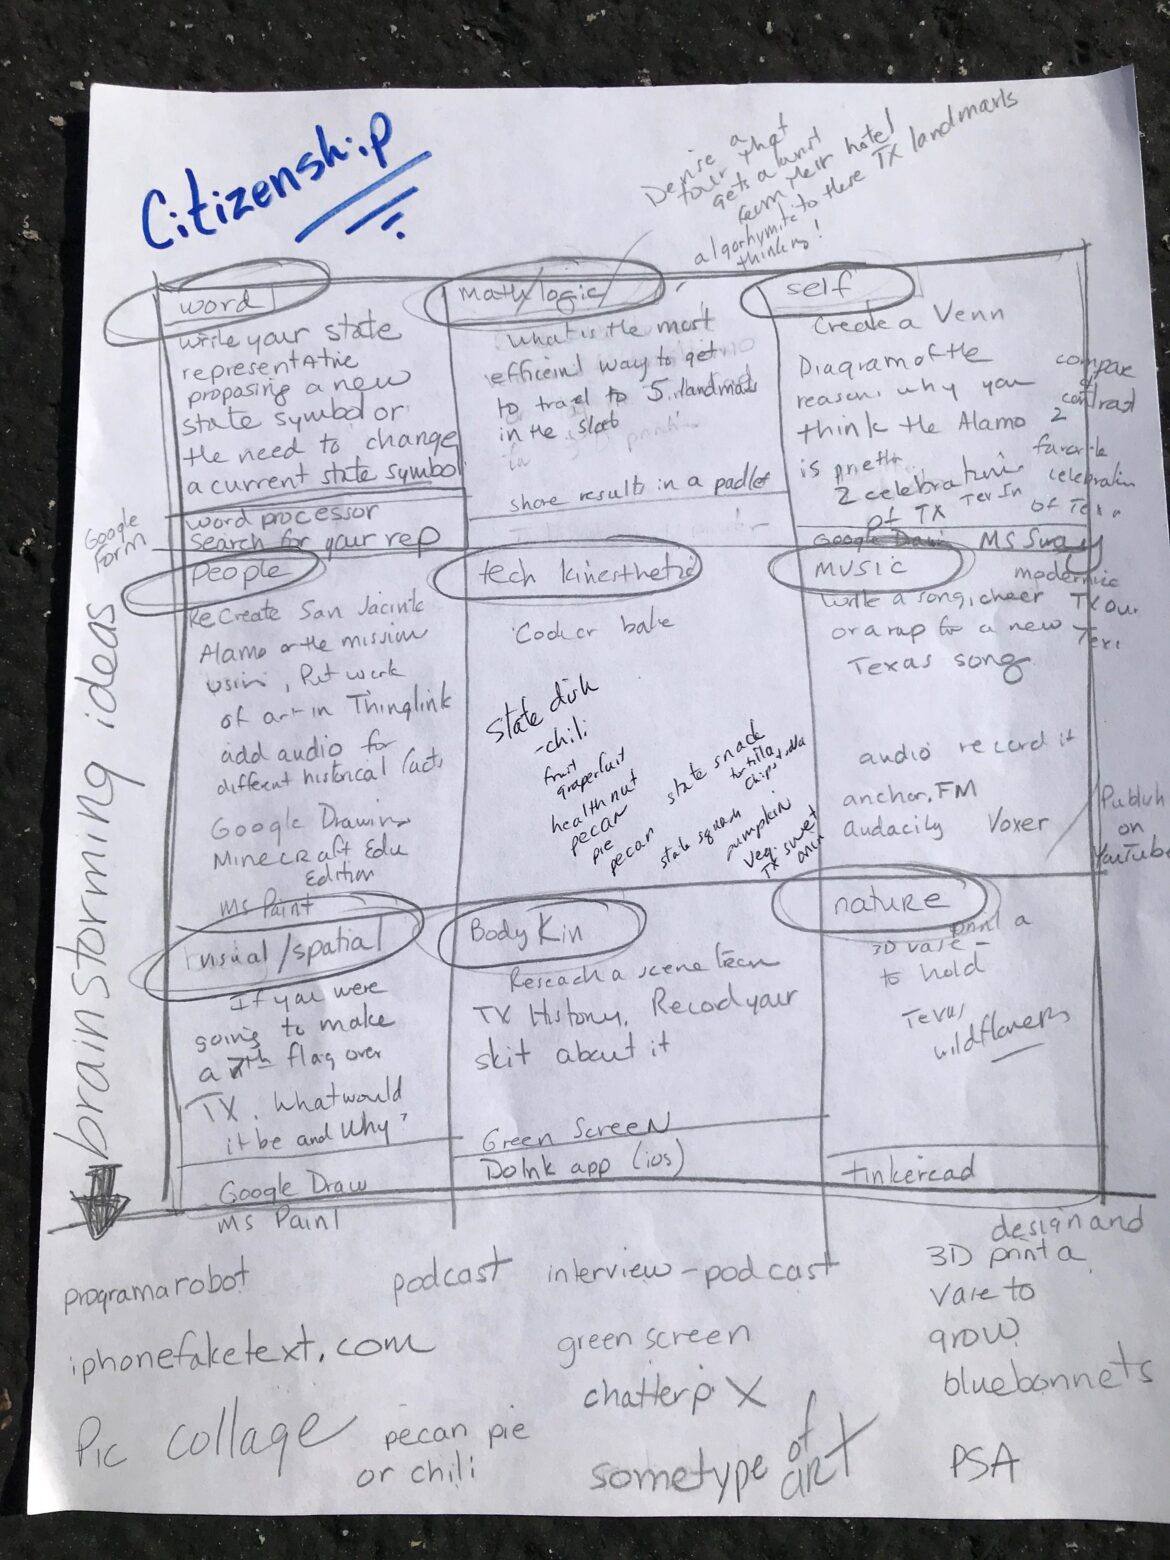 Citizenship
Devise a
tour that
gets a
from their hotel
to these TX landmarks
algorhymitic
thinking!
word
write your state
representative
proposing a new
state symbol or
the need to change
a current state symbol
word processor
search for your rep
Google
Form
math/logic
What is the most
efficient way to get
to travel to 5 landmarks
in the
share results in a padlet
self
Create a Venn
Diagram of the
reasons why you
think the Alamo
is
2 celebrations
of TX
compare
contrast
2
favorite
celebration
of Texas
Google Draw
MS Sway
people
ReCreate San Jacinto
Alamo or the mission
using, Put work
of art in Thinglink
add audio for
different historical facts
Google Drawing
Minecraft Edu
Edition
MS Paint
tech kinesthetic
Cook or bake
State dish
-chili
fruit
grapefruit
health nut
pecan
pie
pecan
state snack
tortilla
chips + salsa
state squash
pumpkin
veg: sweet
TX onion
music
Write a song, cheer
or a rap for a new
Texas song
modernize
TX our
Texas
audio record it
anchor.FM
audacity Voxer
Publish
on
YouTube
visual/spatial
If you were
going to make
a 7th flag over
TX. What would
it be and Why?
Google Draw
MS Paint
Body Kin
Reseach a scene from
TX History. Record your
skit about it
Green Screen
DoInk app (ios)
nature
print a
3D vase -
to hold
Texas
wildflowers
tinkercad
brainstorming ideas
program a robot
podcast
interview - podcast
design and
3D print a
vase to
grow
bluebonnets
iphonefaketext.com
green screen
chatterpix
Pic collage
pecan pie
or chili
sometype of
art
PSA